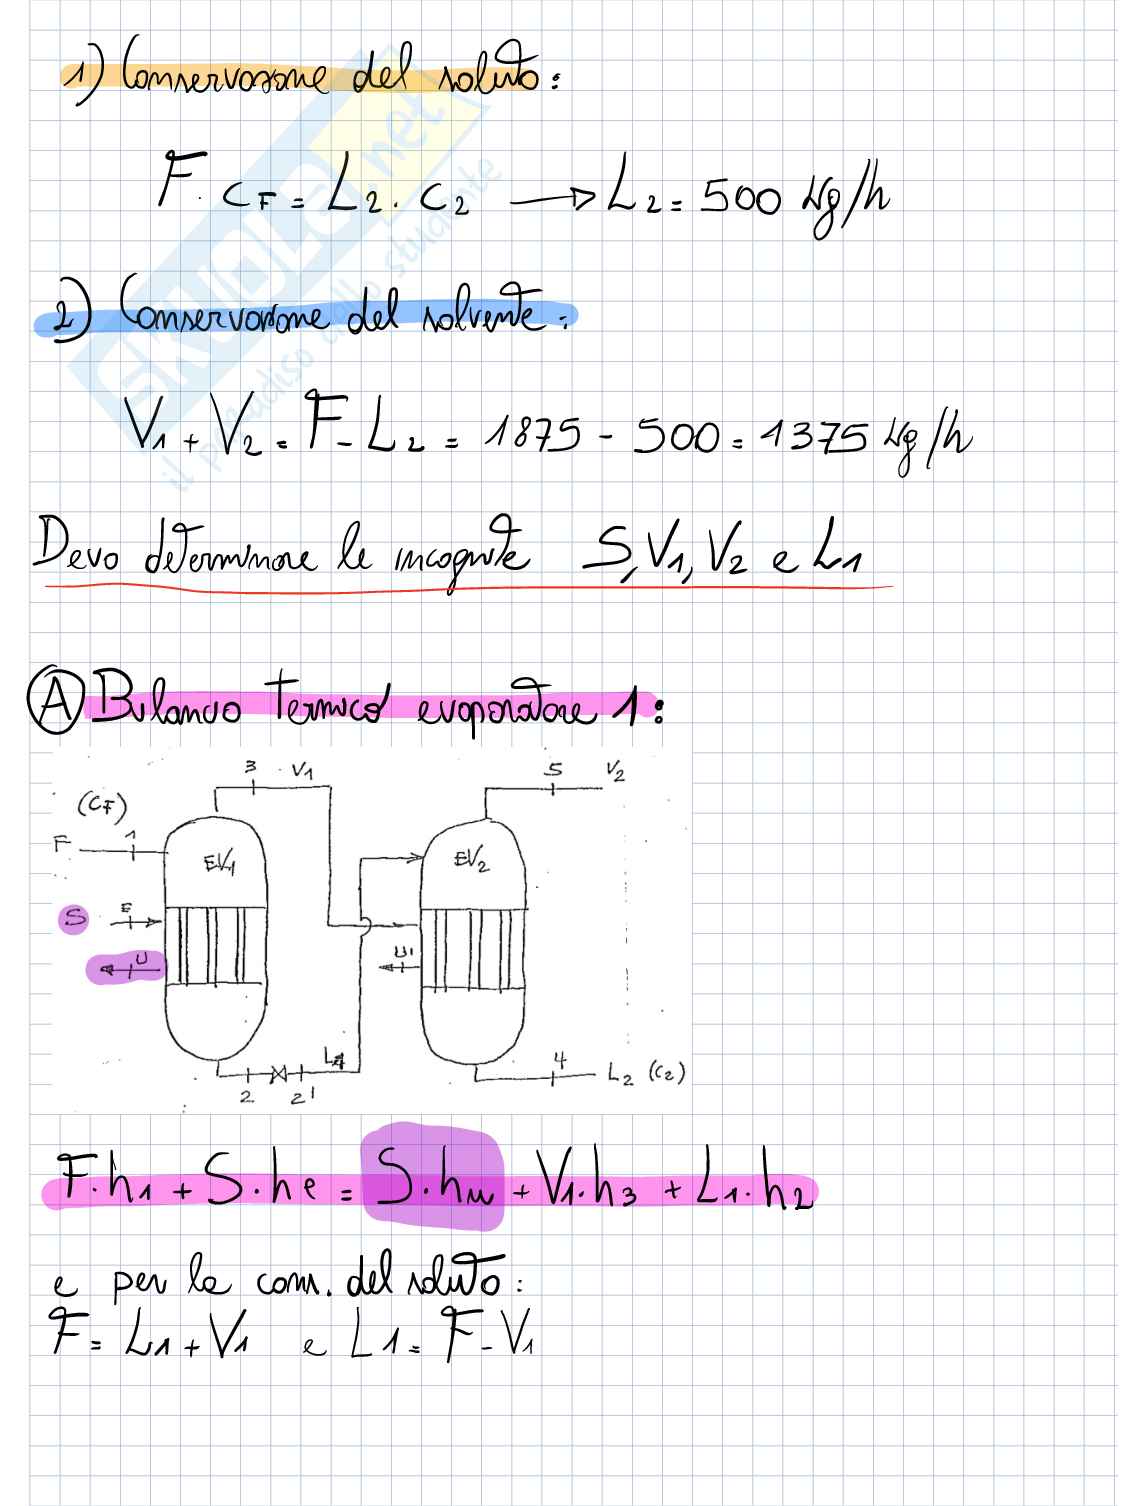 1) Conservazione del soluto:
F · CF = L2 · C2 → L2 = 500 Kg/h
2) Conservazione del solvente:
V1 + V2 = F - L2 = 1875 - 500 = 1375 Kg/h
Devo determinare le incognite S, V1, V2 e L1
A Bilancio termico evaporatore 1:
3 V1
5 V2
(CF)
F 1
EV1
EV2
S E
U
U'
L1
4 L2 (C2)
2 2'
F·h1 + S·he = S·hu + V1·h3 + L1·h2
e per la cons. del soluto:
F = L1 + V1 e L1 = F - V1
SKUOLA.net
il paradiso dello studente